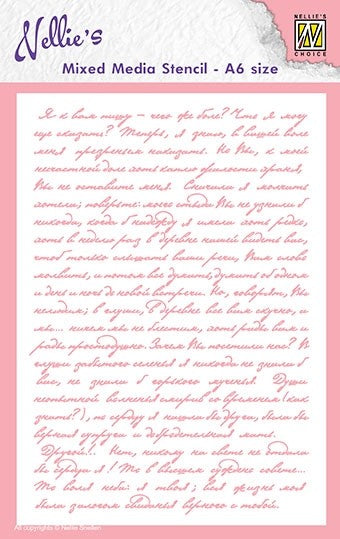 Nellie's
NELLIE'S
CHOICE
Mixed Media Stencil - A6 size
Я к вам пишу – чего же боле? Что я могу
еще сказать? Теперь, я знаю, в вашей воле
меня презреньем наказать. Но Вы, к моей
несчастной доле хоть каплю жалости храня,
Вы не оставите меня. Сначала я молчать
хотела; поверьте: моего стыда Вы не узнали б
никогда, когда б надежду я имела хоть редко,
хоть в неделю раз в деревне нашей видеть вас,
чтоб только слышать ваши речи, Вам слово
молвить, и потом все думать, думать об одном
и день и ночь до новой встречи. Но, говорят, Вы
нелюдим; в глуши, в деревне все вам скучно, и
мы... ничем мы не блестим, хоть рады вам и
рады простодушно. Зачем Вы посетили нас? В
глуши забытого селенья я никогда не знала б
вас, не знала б горького мученья. Души
неопытной волненья смирив со временем (как
знать?), по сердцу я нашла бы друга, была бы
верная супруга и добродетельная мать.
Другой!.. Нет, никому на свете не отдала
бы сердца я! То в высшем суждено совете...
То воля неба: я твоя; вся жизнь моя
была залогом свиданья верного с тобой.
All copyrights © Nellie Snellen